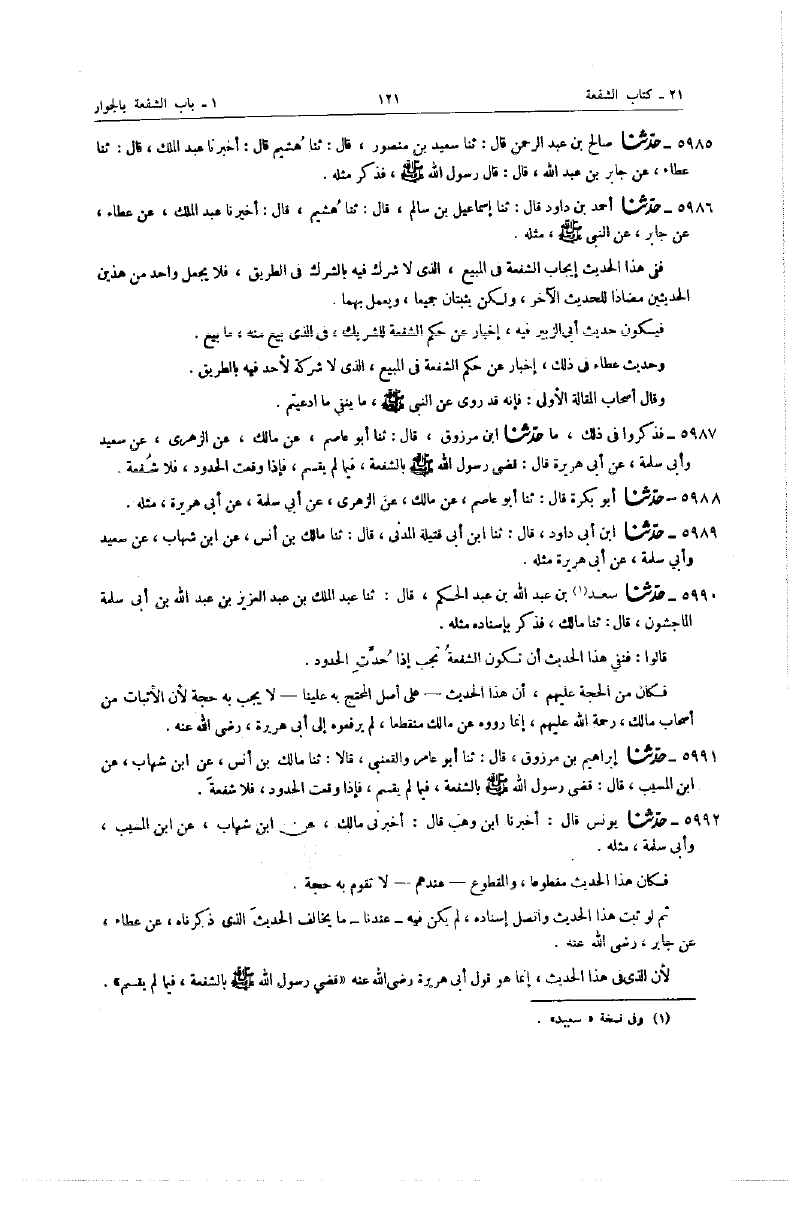 ٢١ ـ كتاب الشفعة ١٢١ ١ ـ باب الشفعة بالجوار
٥٩٨٥ ـ حدثنا صالح بن عبد الرحمن قال : ثنا سعيد بن منصور ، قال : ثنا هُشيم قال : أخبرنا عبد الملك ، قال : ثنا
عطاء ، عن جابر بن عبد الله ، قال : قال رسول الله ﷺ ، فذكر مثله .
٥٩٨٦ ـ حدثنا أحمد بن داود قال : ثنا إسماعيل بن سالم ، قال : ثنا هُشيم ، قال : أخبرنا عبد الملك ، عن عطاء ،
عن جابر ، عن النبى ﷺ ، مثله .
ففى هذا الحديث إيجاب الشفعة فى المبيع ، الذى لا شرك فيه بالشرك فى الطريق ، فلا يجعل واحد من هذين
الحديثين مضادا للحديث الآخر ، ولكن يثبتان جميعا ، ويعمل بهما .
فيكون حديث أبى الزبير فيه ، إخبار عن حكم الشفعة للشريك ، فى الذى بيع منه ، ما بيع .
وحديث عطاء فى ذلك ، إخبار عن حكم الشفعة فى المبيع ، الذى لا شركة لأحد فيه بالطريق .
وقال أصحاب المقالة الأولى : فإنه قد روى عن النبى ﷺ ، ما ينفى ما ادعيتم .
٥٩٨٧ ـ فذكروا فى ذلك ، ما حدثنا ابن مرزوق ، قال : ثنا أبو عاصم ، عن مالك ، عن الزهرى ، عن سعيد
وأبى سلمة ، عن أبى هريرة قال : قضى رسول الله ﷺ بالشفعة ، فيما لم يقسم ، فإذا وقعت الحدود ، فلا شُفعة .
٥٩٨٨ ـ حدثنا أبو بكرة قال : ثنا أبو عاصم ، عن مالك ، عن الزهرى ، عن أبي سلمة ، عن أبي هريرة ، مثله .
٥٩٨٩ ـ حدثنا ابن أبى داود ، قال : ثنا ابن أبى قتيلة المدنى ، قال : ثنا مالك بن أنس ، عن ابن شهاب ، عن سعيد
وأبي سلمة ، عن أبى هريرة مثله .
٥٩٩٠ ـ حدثنا سعد(١) بن عبد الله بن عبد الحكم ، قال : ثنا عبد الملك بن عبد العزيز بن عبد الله بن أبى سلمة
الماجشون ، قال : ثنا مالك ، فذكر بإسناده مثله .
قالوا : فنفى هذا الحديث أن تكون الشفعةُ تجب إذا حُدَّتِ الحدود .
فكان من الحجة عليهم ، أن هذا الحديث ـ على أصل المحتج به علينا ـ لا يجب به حجة لأن الأثبات من
أصحاب مالك ، رحمة الله عليهم ، إنما رووه عن مالك منقطعا ، لم يرفعوه إلى أبى هريرة ، رضى الله عنه .
٥٩٩١ ـ حدثنا إبراهيم بن مرزوق ، قال : ثنا أبو عامر والقعنبي ، قالا : ثنا مالك بن أنس ، عن ابن شهاب ، عن
ابن المسيب ، قال : قضى رسول الله ﷺ بالشفعة ، فيما لم يقسم ، فإذا وقعت الحدود ، فلا شفعةَ .
٥٩٩٢ ـ حدثنا يونس قال : أخبرنا ابن وهب قال : أخبرنى مالك ، عن ابن شهاب ، عن ابن المسيب ،
وأبى سلمة ، مثله .
فكان هذا الحديث مقطوعا ، والمقطوع ـ عندهم ـ لا تقوم به حجة .
ثم لو ثبت هذا الحديث واتصل إسناده ، لم يكن فيه ـ عندنا ـ ما يخالف الحديث الذى ذكرناه ، عن عطاء ،
عن جابر ، رضى الله عنه .
لأن الذى فى هذا الحديث ، إنما هو قول أبى هريرة رضى الله عنه «قضي رسول الله ﷺ بالشفعة ، فيما لم يقسم» .
(١) وفى نسخة « سعيد» .